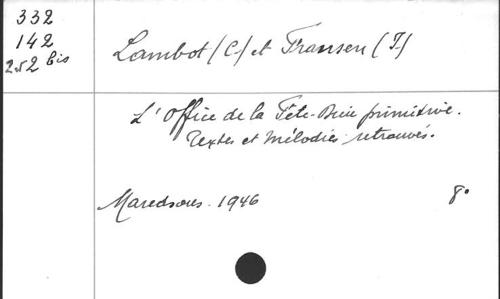 332
142
252 bis
Lambot (C.) et Fransen (I.)
L'Office de la Fête-Dieu primitive.
Textes et Mélodies retrouvés.
Maredsous. 1946 8°